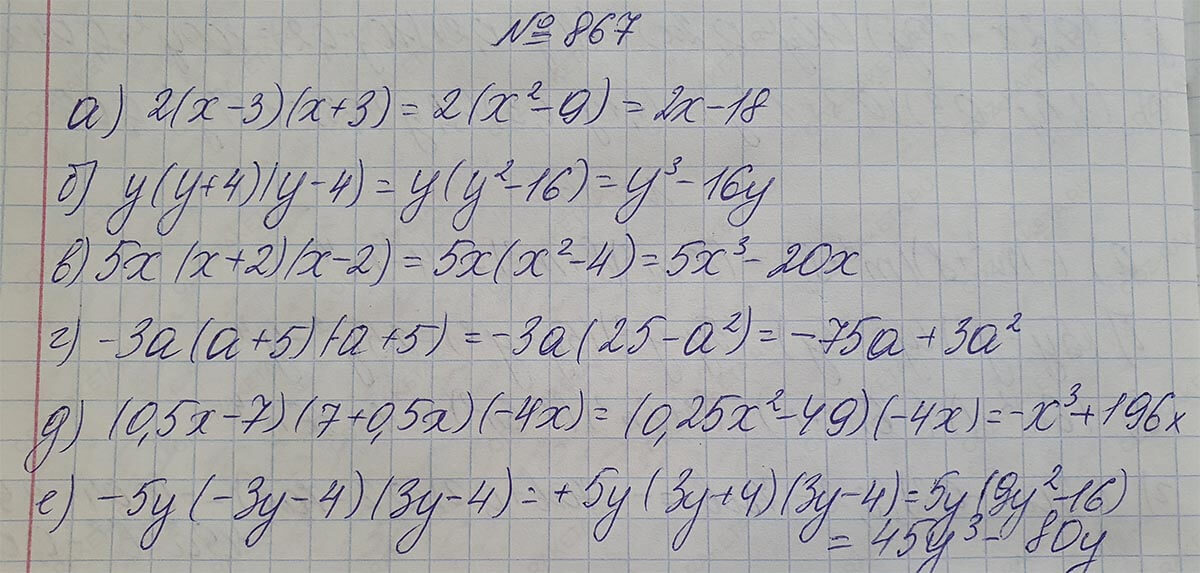 № 867
а) 2(x-3)(x+3) = 2(x²-9) = 2x-18
б) y(y+4)(y-4) = y(y²-16) = y³-16y
в) 5x(x+2)(x-2) = 5x(x²-4) = 5x³-20x
г) -3a(a+5)(-a+5) = -3a(25-a²) = -75a+3a²
д) (0,5x-7)(7+0,5x)(-4x) = (0,25x²-49)(-4x) = -x³+196x
е) -5y(-3y-4)(3y-4) = +5y(3y+4)(3y-4) = 5y(9y²-16)
= 45y³-80y